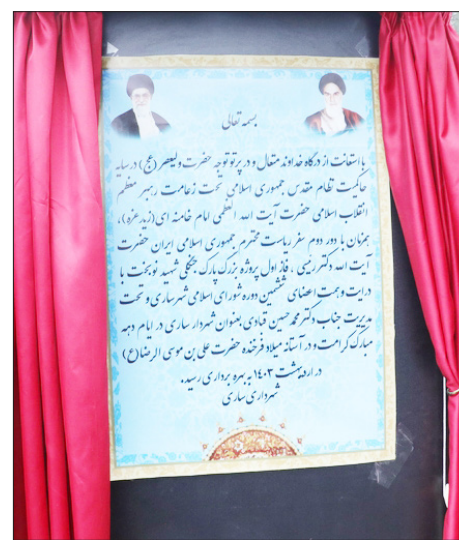 بسمه تعالی
با استعانت از درگاه خداوند متعال و در پرتو توجه حضرت ولیعصر (عج) در سایه
حاکمیت نظام مقدس جمهوری اسلامی تحت زعامت رهبر معظم
انقلاب اسلامی حضرت آیت الله العظمی امام خامنه ای(زید عزه)،
همزمان با دور دوم سفر ریاست محترم جمهوری اسلامی ایران حضرت
آیت الله دکتر رئیسی، فاز اول پروژه بزرگ پارک جنگلی شهید نوبخت با
درایت و همت اعضای ششمین دوره شورای اسلامی شهر ساری و تحت
مدیریت جناب دکتر محمد حسین قبادی بعنوان شهردار ساری در ایام دهه
مبارک کرامت و در آستانه میلاد فرخنده حضرت علی بن موسی الرضا(ع)
در اردیبهشت ۱۴۰۳ به بهره برداری رسید.
شهرداری ساری